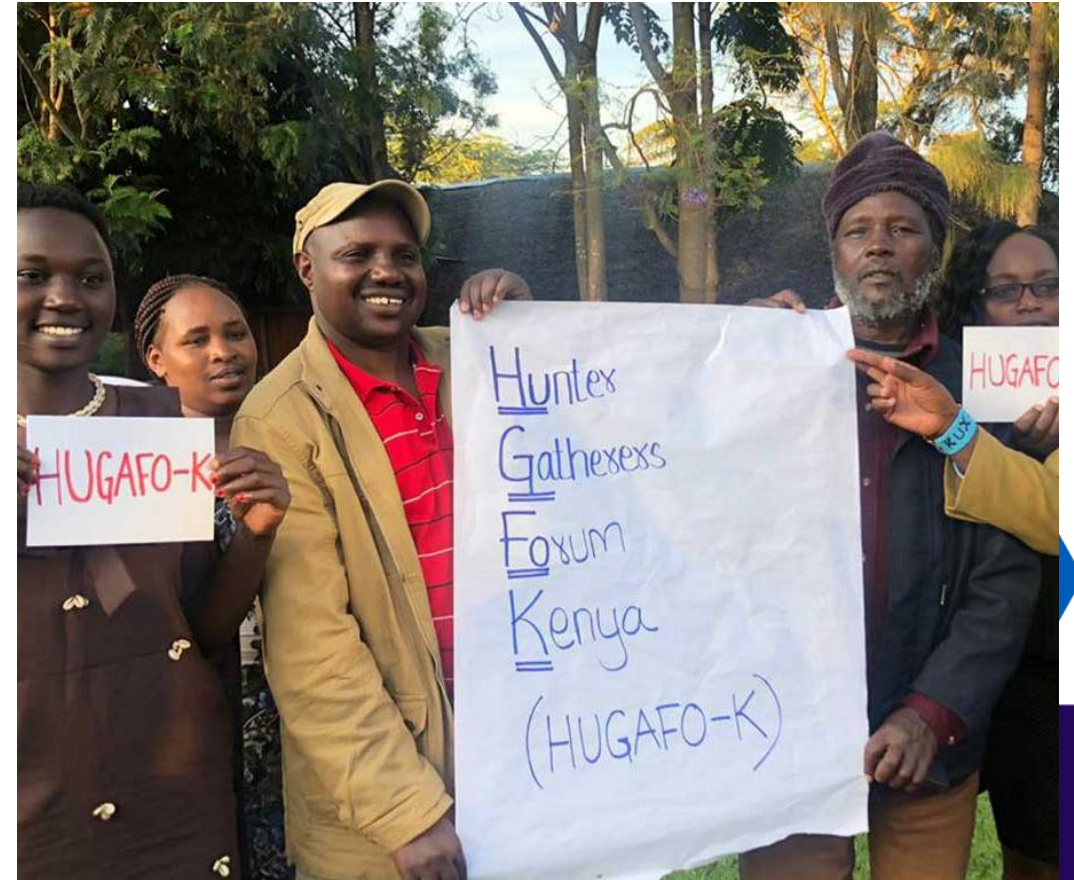 HUGAFO-K
Hunter
Gatherers
Forum
Kenya
(HUGAFO-K)
HUGAFO
RUX